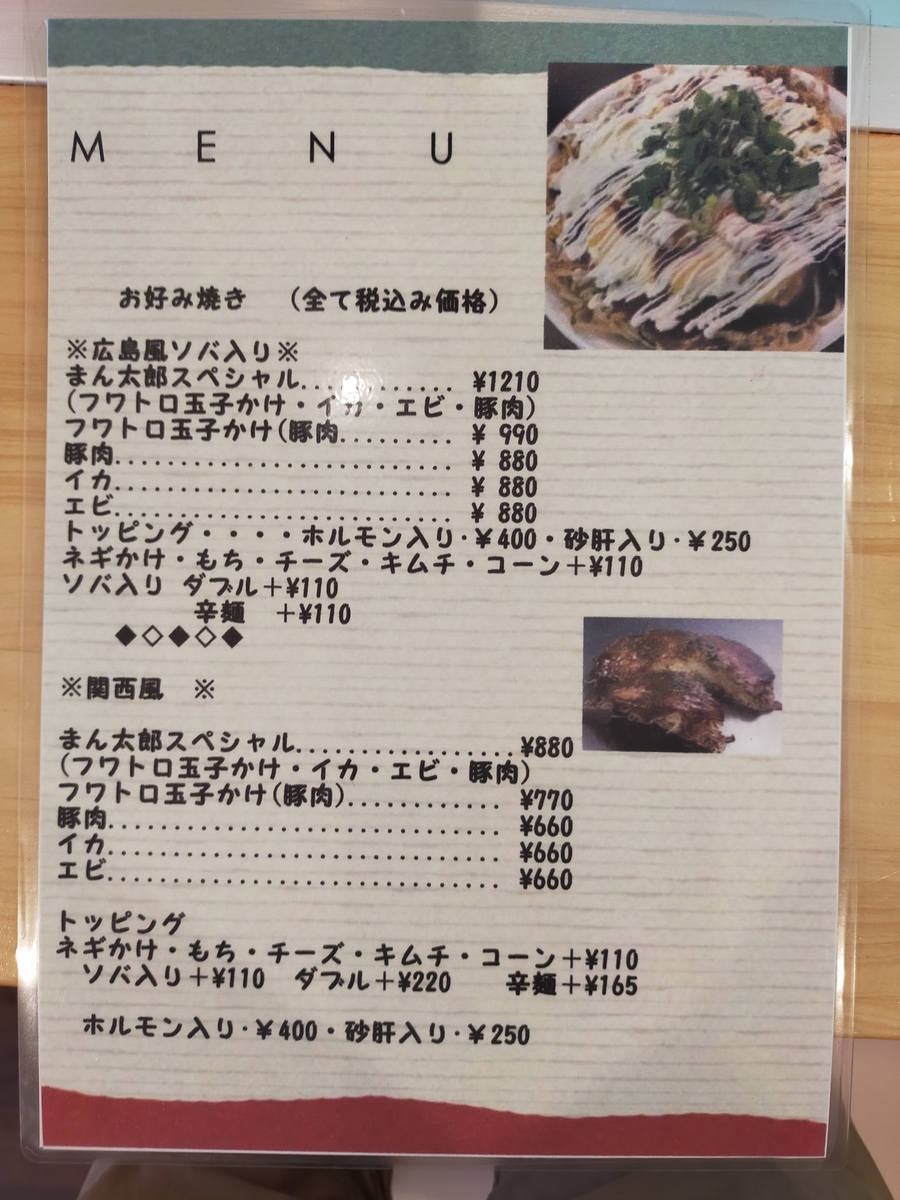 MENU
お好み焼き （全て税込み価格）
※広島風ソバ入り※
まん太郎スペシャル............ ¥1210
(フワトロ玉子かけ・イカ・エビ・豚肉)
フワトロ玉子かけ(豚肉......... ¥ 990
豚肉.......................... ¥ 880
イカ.......................... ¥ 880
エビ.......................... ¥ 880
トッピング・・・・ホルモン入り・¥400・砂肝入り・¥250
ネギかけ・もち・チーズ・キムチ・コーン＋¥110
ソバ入り ダブル＋¥110
辛麺 ＋¥110
◆◇◆◇◆
※関西風 ※
まん太郎スペシャル.................¥880
(フワトロ玉子かけ・イカ・エビ・豚肉)
フワトロ玉子かけ(豚肉)............ ¥770
豚肉.............................. ¥660
イカ.............................. ¥660
エビ.............................. ¥660
トッピング
ネギかけ・もち・チーズ・キムチ・コーン＋¥110
ソバ入り＋¥110 ダブル＋¥220 辛麺＋¥165
ホルモン入り・¥400・砂肝入り・¥250